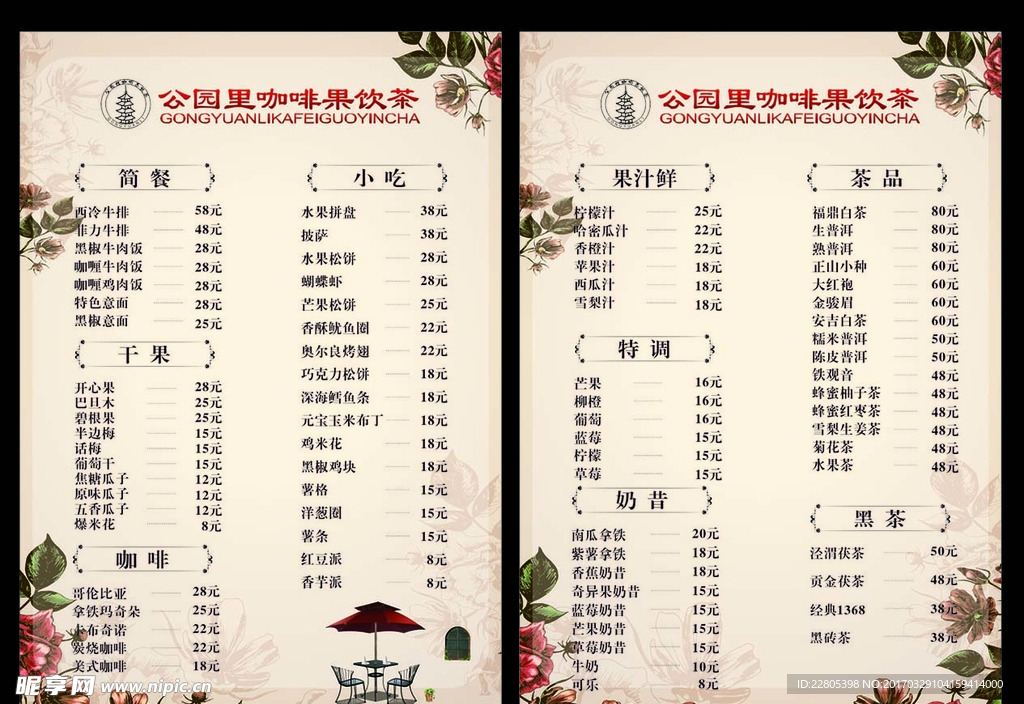 公园里咖啡果饮茶
GONGYUANLIKAFEIGUOYINCHA
简餐
西冷牛排 58元
菲力牛排 48元
黑椒牛肉饭 28元
咖喱牛肉饭 28元
咖喱鸡肉饭 28元
特色意面 28元
黑椒意面 25元
干果
开心果 28元
巴旦木 25元
碧根果 25元
半边梅 15元
话梅 15元
葡萄干 15元
焦糖瓜子 12元
原味瓜子 12元
五香瓜子 12元
爆米花 8元
咖啡
哥伦比亚 28元
拿铁玛奇朵 25元
卡布奇诺 22元
炭烧咖啡 22元
美式咖啡 18元
小吃
水果拼盘 38元
披萨 38元
水果松饼 28元
蝴蝶虾 28元
芒果松饼 25元
香酥鱿鱼圈 22元
奥尔良烤翅 22元
巧克力松饼 18元
深海鳕鱼条 18元
元宝玉米布丁 18元
鸡米花 18元
黑椒鸡块 18元
薯格 15元
洋葱圈 15元
薯条 15元
红豆派 8元
香芋派 8元
公园里咖啡果饮茶
GONGYUANLIKAFEIGUOYINCHA
果汁鲜
柠檬汁 25元
哈密瓜汁 22元
香橙汁 22元
苹果汁 18元
西瓜汁 18元
雪梨汁 18元
特调
芒果 16元
柳橙 16元
葡萄 16元
蓝莓 15元
柠檬 15元
草莓 15元
奶昔
南瓜拿铁 20元
紫薯拿铁 18元
香蕉奶昔 18元
奇异果奶昔 15元
蓝莓奶昔 15元
芒果奶昔 15元
草莓奶昔 15元
牛奶 10元
可乐 8元
茶品
福鼎白茶 80元
生普洱 80元
熟普洱 80元
正山小种 60元
大红袍 60元
金骏眉 60元
安吉白茶 60元
糯米普洱 50元
陈皮普洱 50元
铁观音 48元
蜂蜜柚子茶 48元
蜂蜜红枣茶 48元
雪梨生姜茶 48元
菊花茶 48元
水果茶 48元
黑茶
泾渭茯茶 50元
贡金茯茶 48元
经典1368 38元
黑砖茶 38元
昵享网 www.nipic.cn
ID:22805398 NO:20170329104159414000